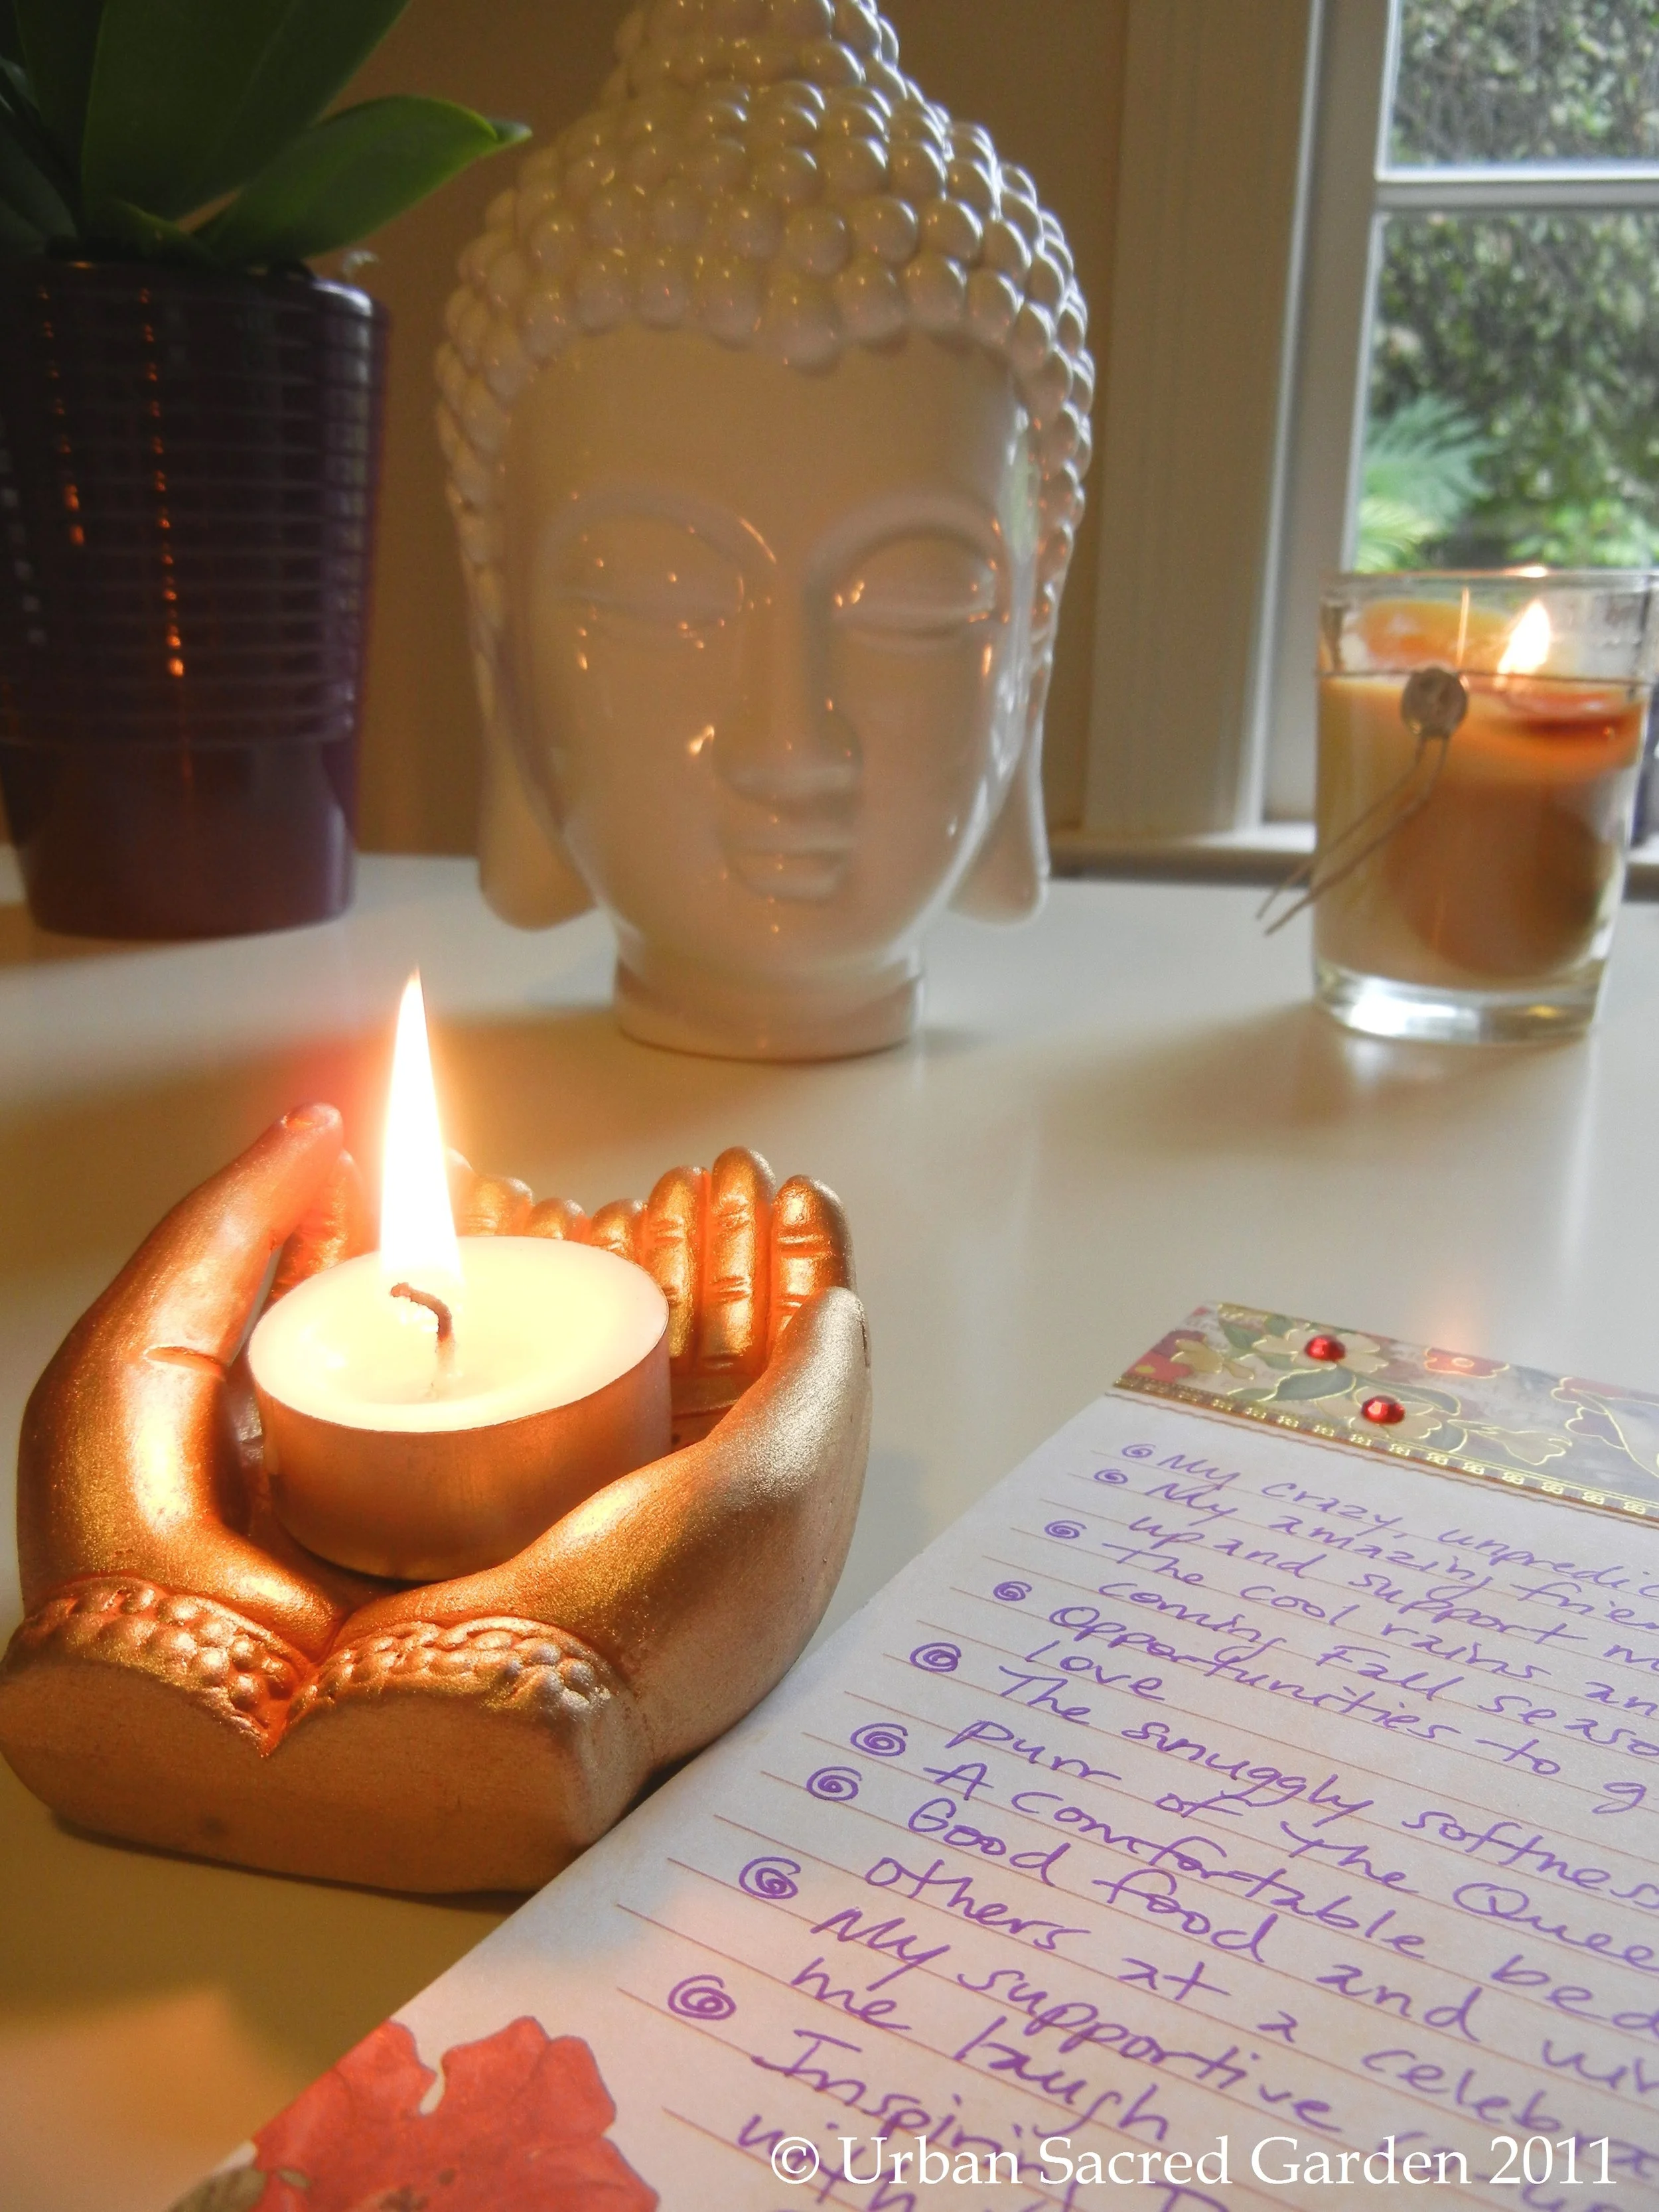 My crazy, unpredic
My amazing frien
up and support m
The cool rains an
coming Fall seaso
Opportunities to g
love
The snuggly softness
purr of the Quee
A comfortable bed
Good food and wi
others at a celebra
My supportive
me laugh
Inspirin
with
© Urban Sacred Garden 2011